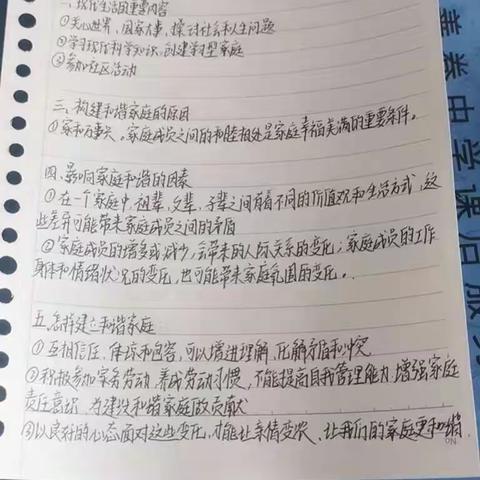 一、现代生活的重要内容
①关心世界、国家大事,探讨社会和人生问题
②学习现代科学知识,创建学习型家庭
③参加社区活动
三、构建和谐家庭的原因
①家和万事兴。家庭成员之间的和睦相处是家庭幸福美满的重要条件。
四、影响家庭和谐的因素
①在一个家庭中,祖辈、父辈、子辈之间有着不同的价值观和生活方式,这
些差异可能带来家庭成员之间的矛盾
②家庭成员的增多或减少,会带来的人际关系的变化;家庭成员的工作
身体和情绪状况的变化,也可能带来家庭氛围的变化。
五、怎样建立和谐家庭
①互相信任、体谅和包容,可以增进理解,化解矛盾和冲突
②积极参加家务劳动,养成劳动习惯,不能提高自我管理能力,增强家庭
责任意识,为建设和谐家庭做贡献
③以良好的心态面对这些变化,才能让亲情变浓、让我们的家庭更和谐
中学课
服